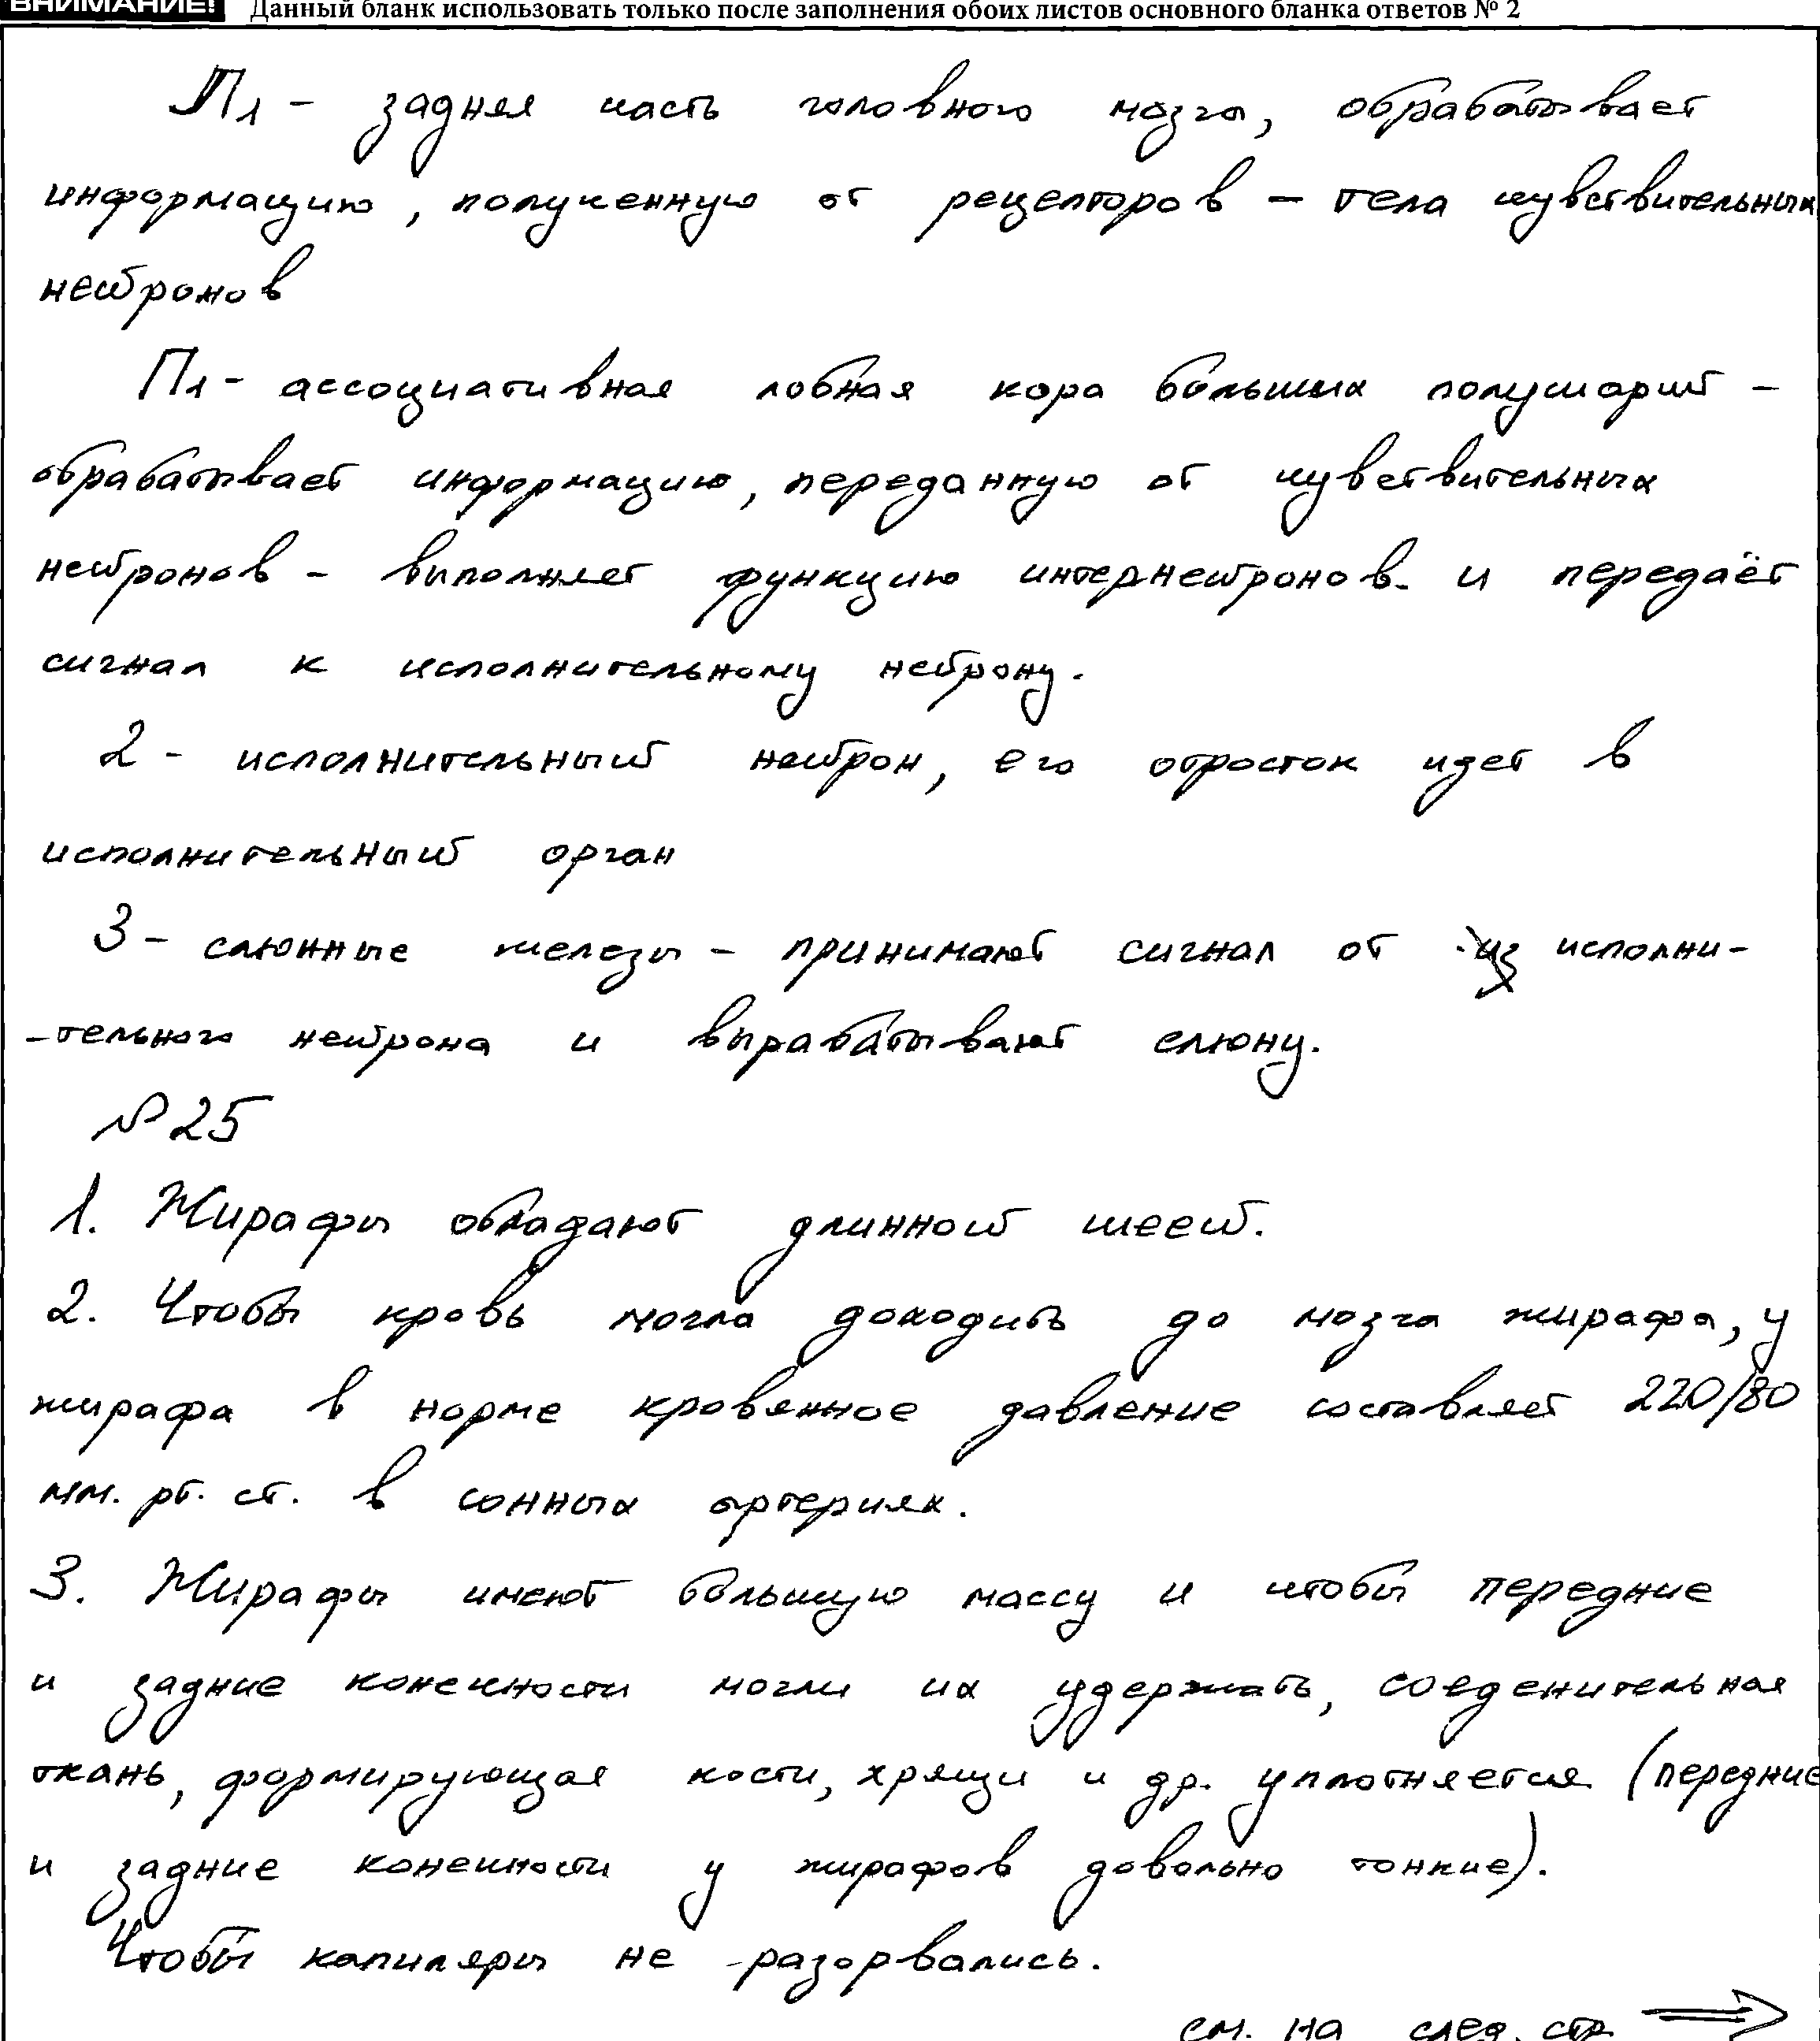 ВНИМАНИЕ! Данный бланк использовать только после заполнения обоих листов основного бланка ответов № 2
П1 - задняя часть головного мозга, обрабатывает
информацию, полученную от рецепторов – тела чувствительных
нейронов
П1 - ассоциативная лобная кора больших полушарий –
обрабатывает информацию, переданную от чувствительных
нейронов – выполняет функцию интернейронов и передаёт
сигнал к исполнительному нейрону.
2 - исполнительный нейрон, его отросток идет в
исполнительный орган
3 - слюнные железы – принимают сигнал от исполни-
-тельного нейрона и вырабатывают слюну.
№ 25
1. Жирафы обладают длинной шеей.
2. Чтобы кровь могла доходить до мозга жирафа, у
жирафа в норме кровянное давление составляет 220/80
мм. рт. ст. в сонных артериях.
3. Жирафы имеют большую массу и чтобы передние
и задние конечности могли их удержать, соеденительная
ткань, формирующая кости, хрящи и др. уплотняется (передние
и задние конечности у жирафов довольно тонкие).
Чтобы капиляры не разорвались.
см. на след. стр. ⟹